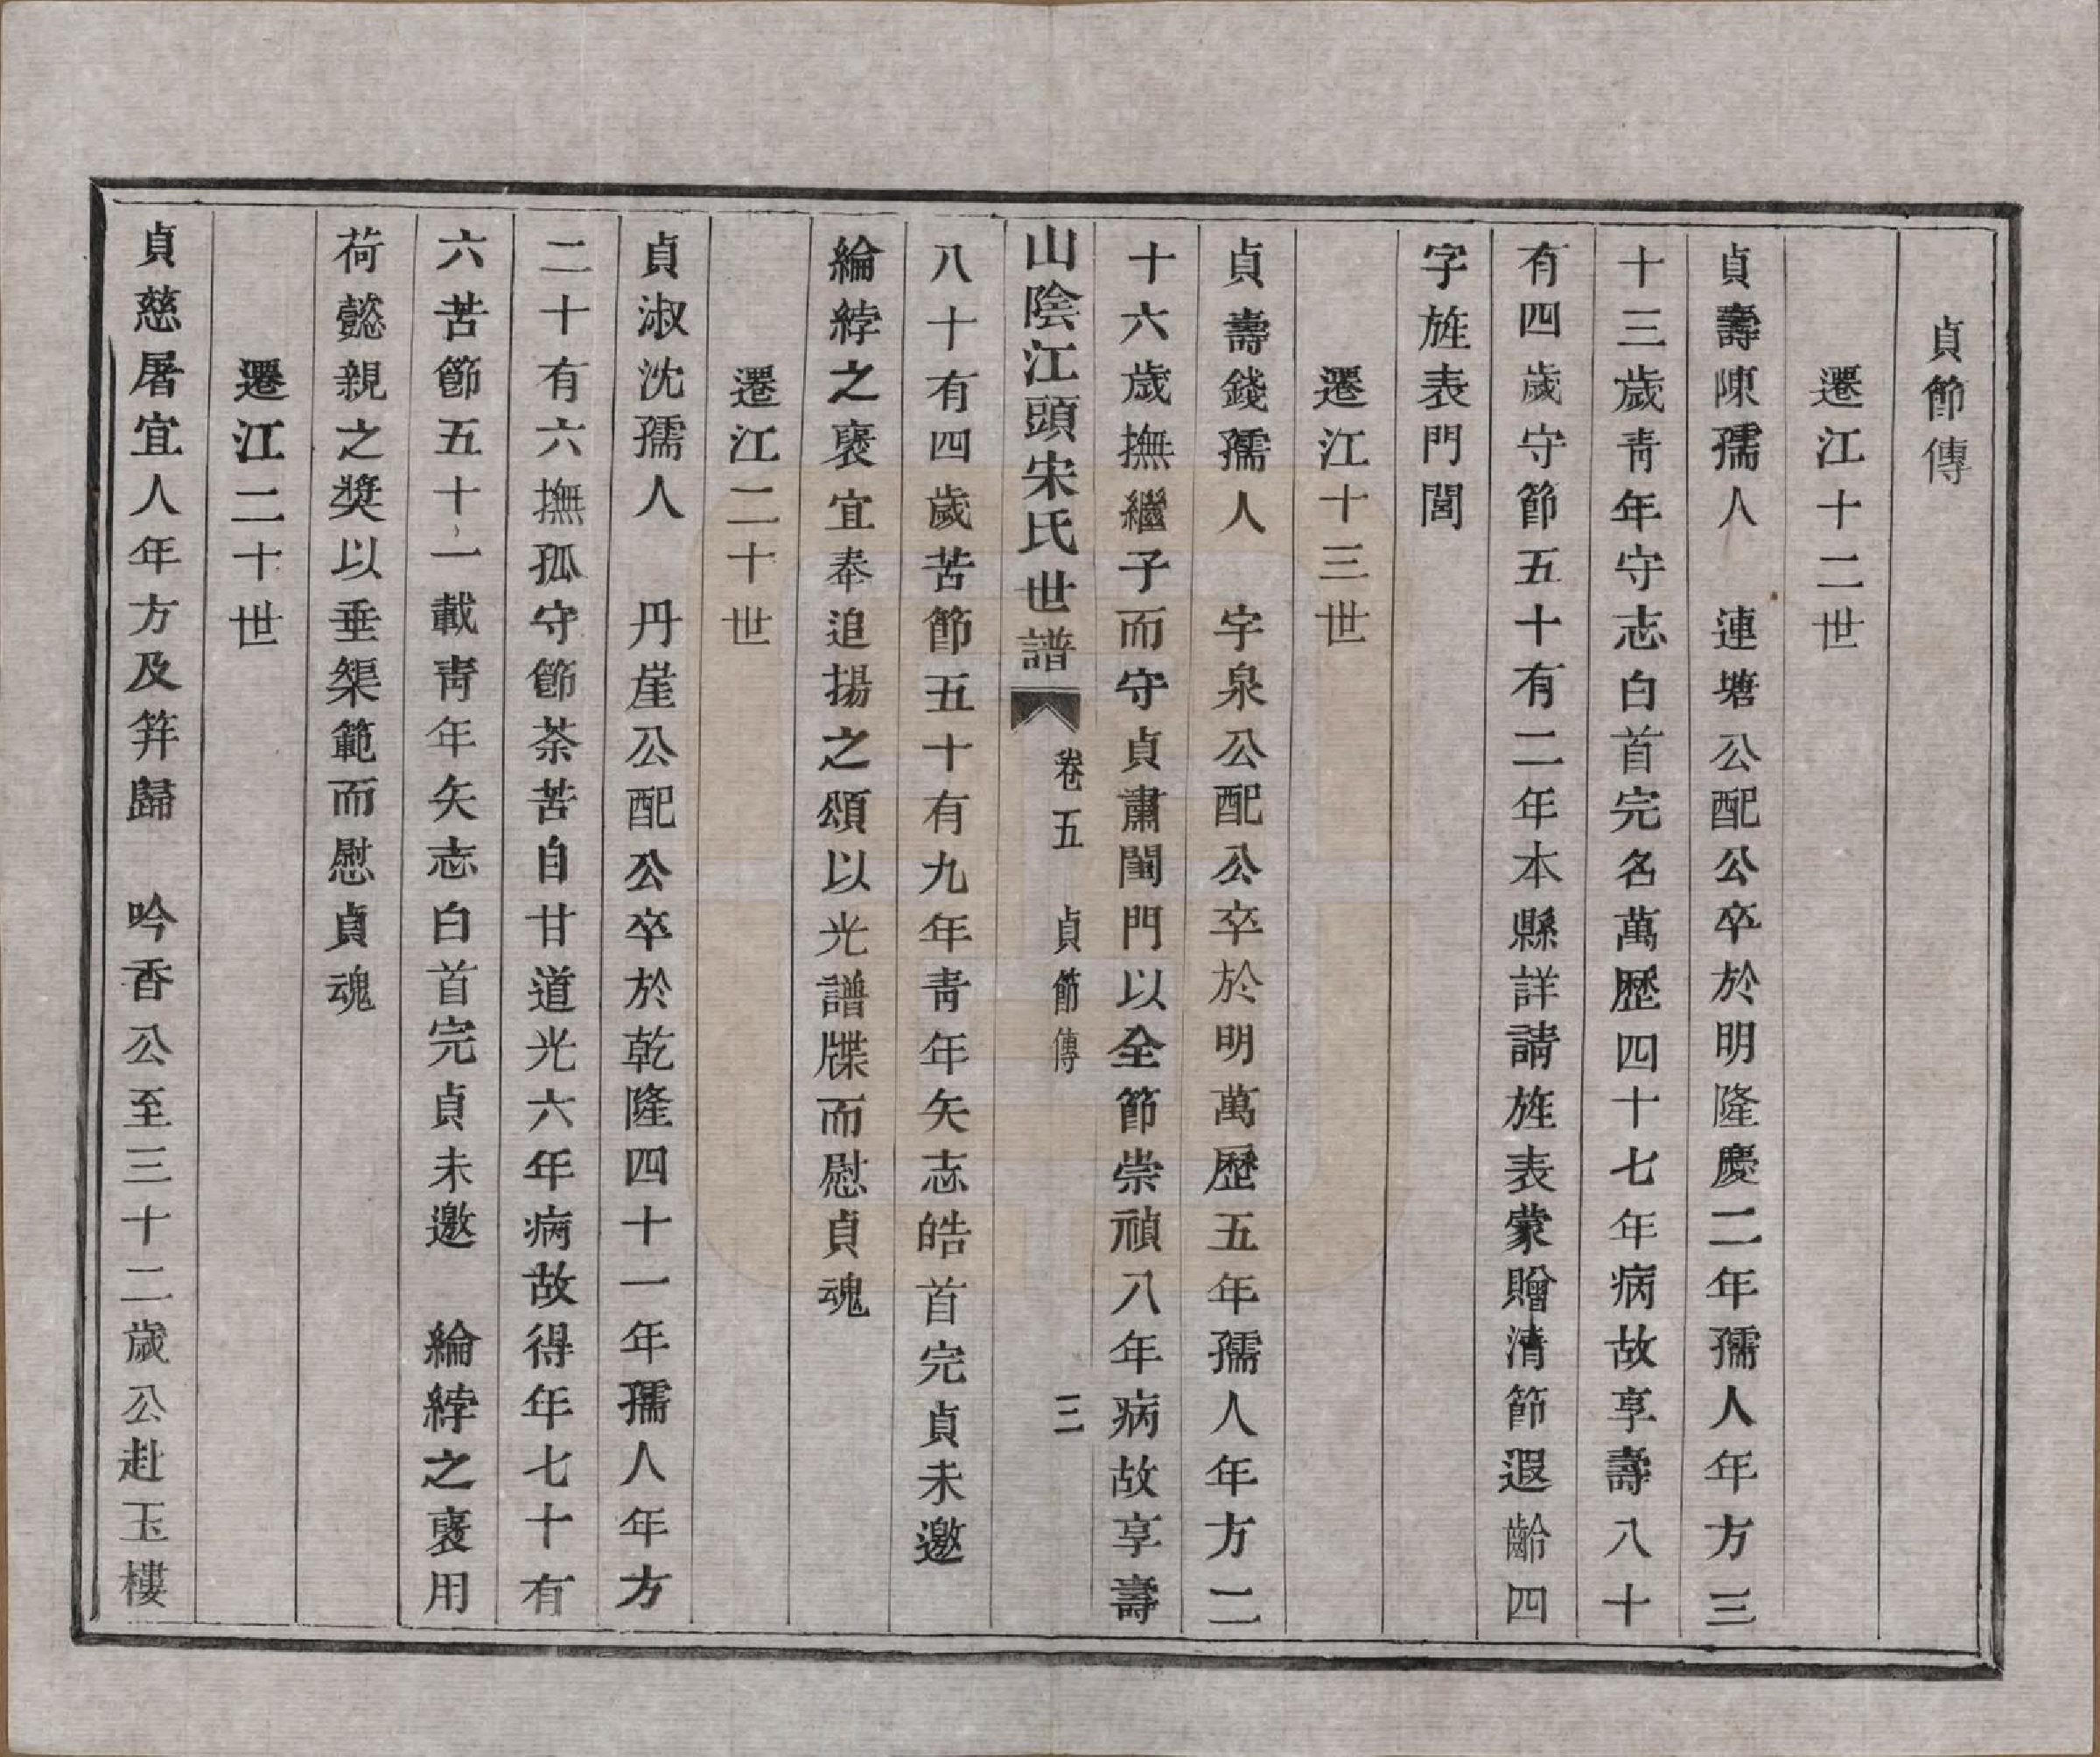 貞節傳
遷江十二世
貞壽陳孺人　連塘公配公卒於明隆慶二年孺人年方三
十三歲青年守志白首完名萬歷四十七年病故享壽八十
有四歲守節五十有二年本縣詳請旌表蒙贈清節遐齡四
字旌表門閭
遷江十三世
貞壽錢孺人　字泉公配公卒於明萬歷五年孺人年方二
十六歲撫繼子而守貞肅閨門以全節崇禎八年病故享壽
山陰江頭宋氏世譜　卷五　貞節傳　三
八十有四歲苦節五十有九年青年矢志皓首完貞未邀
綸綍之褒宜奉追揚之頌以光譜牒而慰貞魂
遷江二十世
貞淑沈孺人　丹崖公配公卒於乾隆四十一年孺人年方
二十有六撫孤守節荼苦自甘道光六年病故得年七十有
六苦節五十一載青年矢志白首完貞未邀　綸綍之褒用
荷懿親之獎以垂榘範而慰貞魂
遷江二十世
貞慈屠宜人年方及笄歸　吟香公至三十二歲公赴玉樓